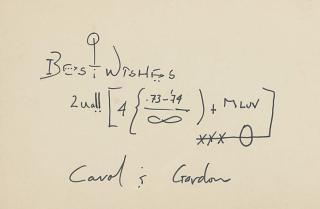 Best Wishes
2 u all [ 4 { .73-'74 ) + M LUV ]
∞
XXX O
Carol & Gordon